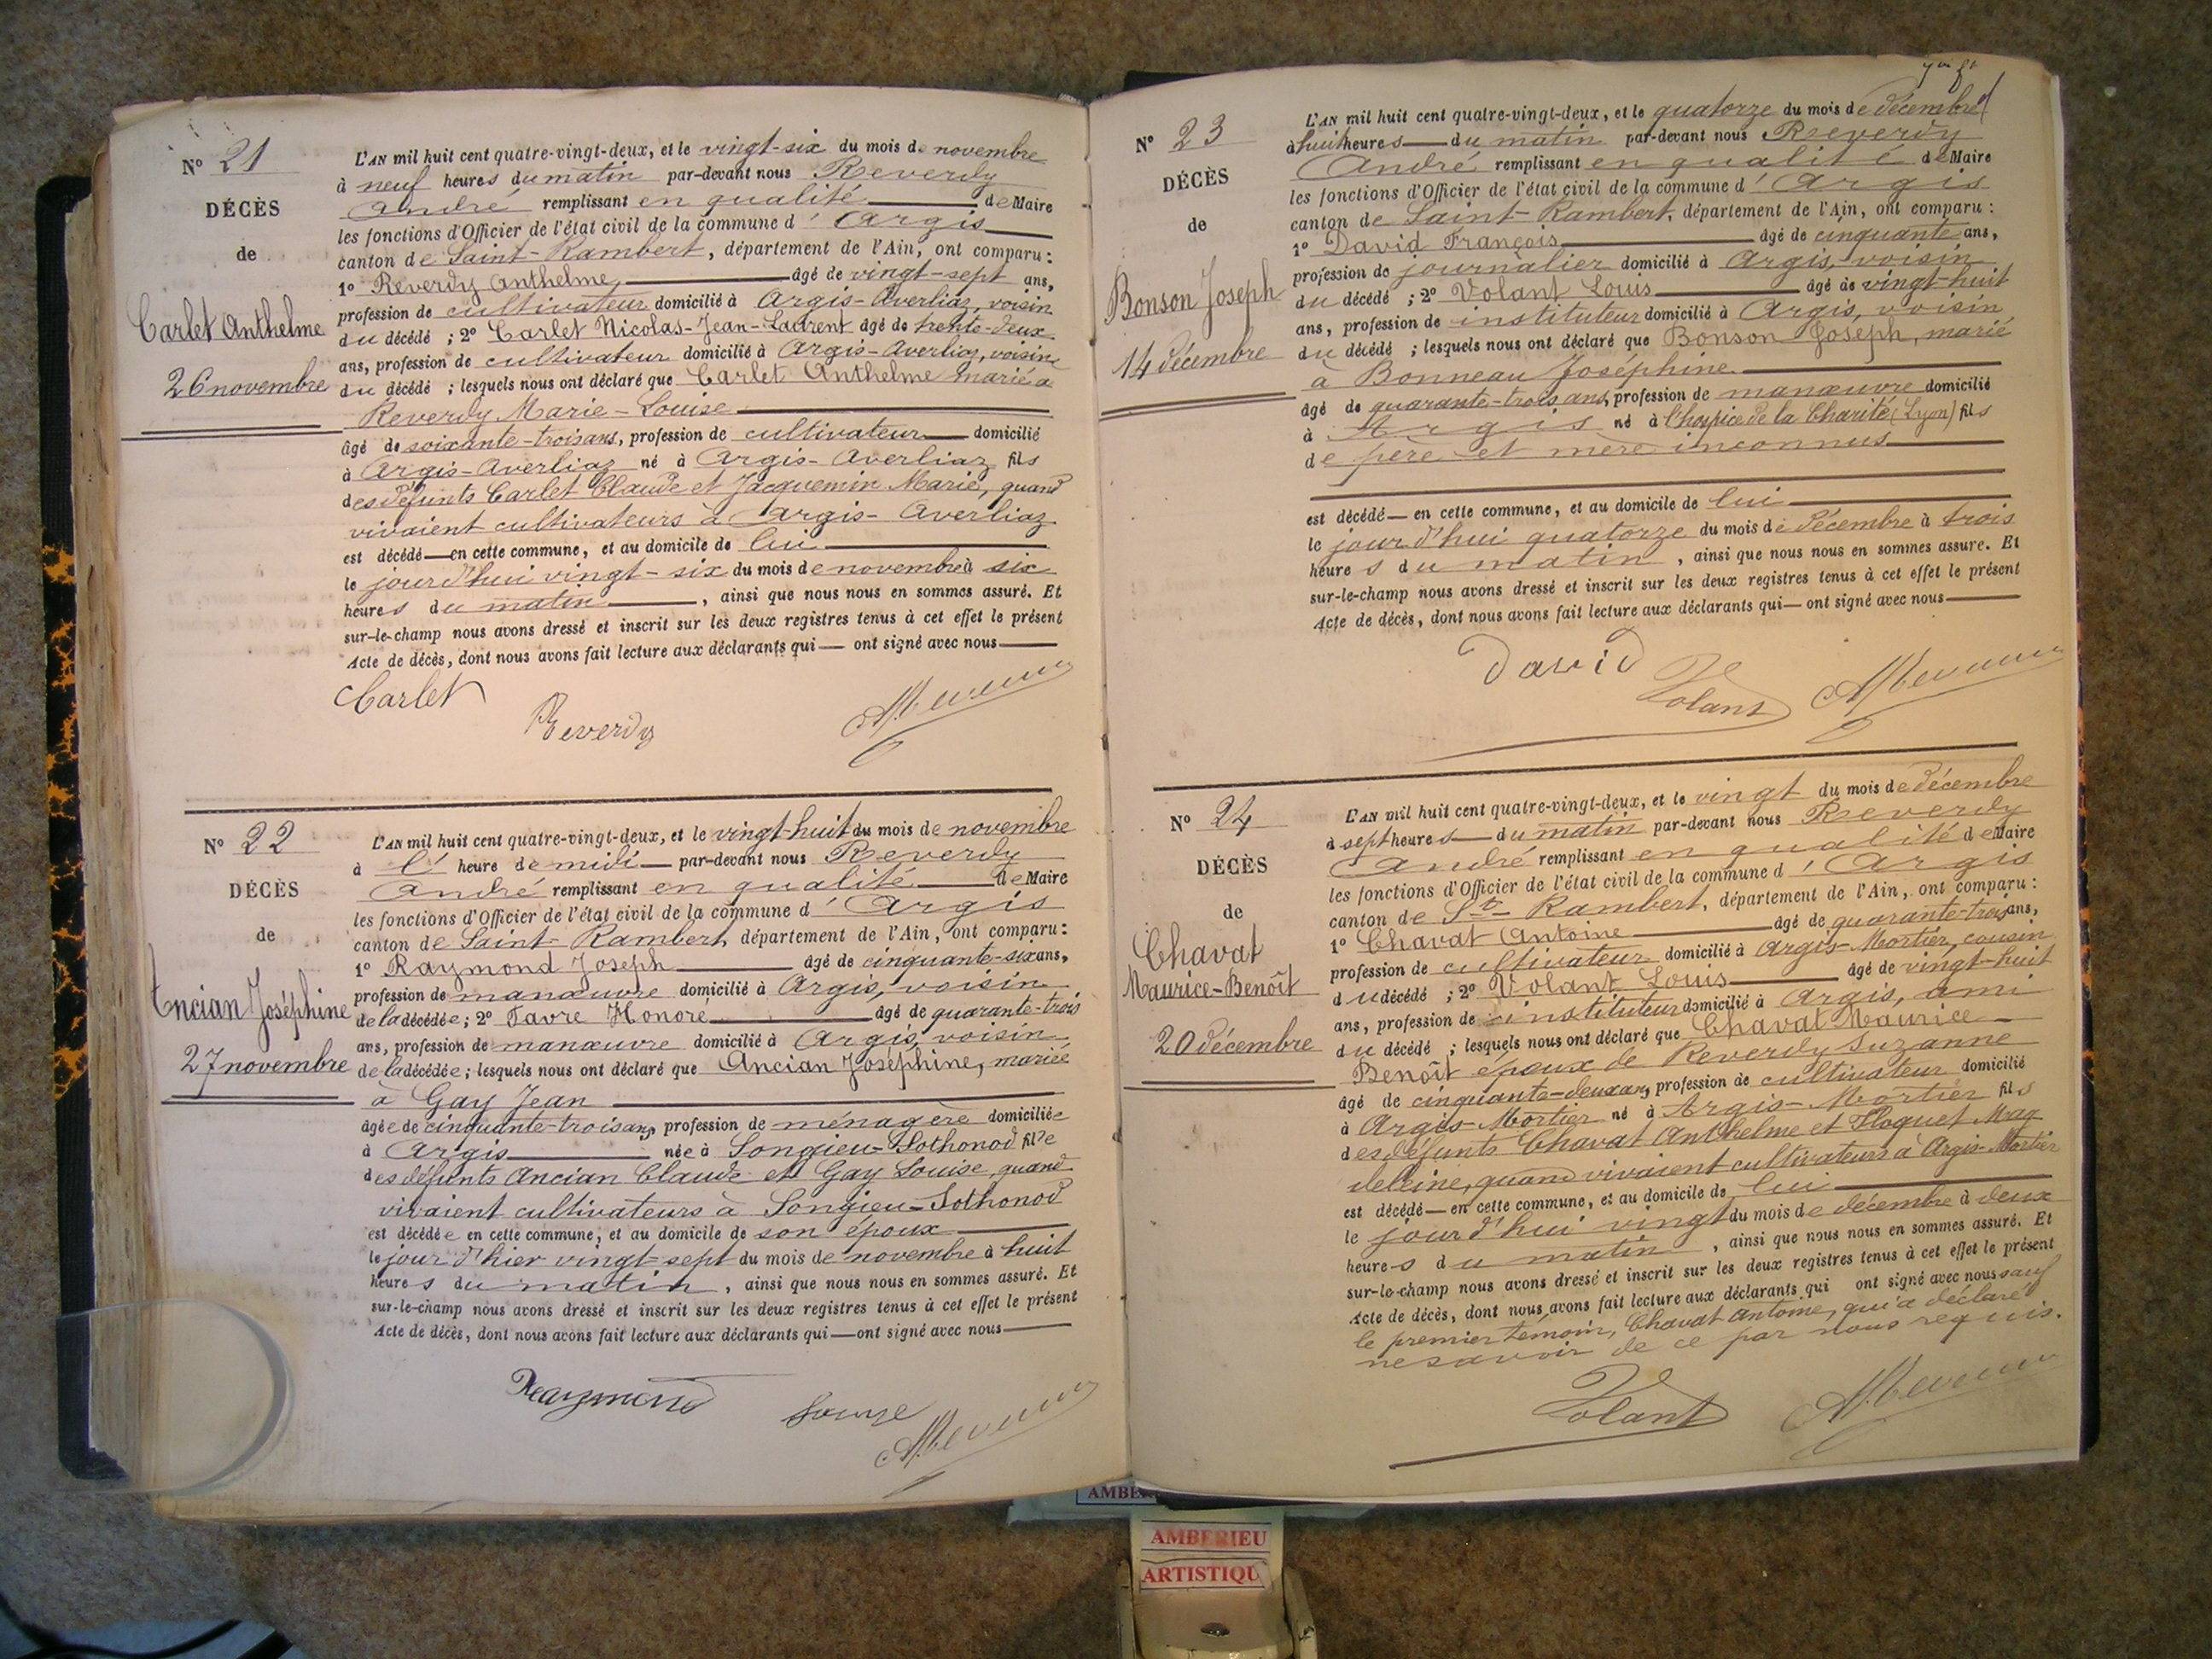 N° 21
DÉCÈS
de
Carlet Anthelme
26 novembre
L'AN mil huit cent quatre-vingt-deux, et le vingt-six du mois de novembre
à neuf heures du matin par-devant nous Reverdy
André remplissant en qualité de Maire
les fonctions d'Officier de l'état civil de la commune d'Argis
canton de Saint-Rambert, département de l'Ain, ont comparu :
1° Reverdy Anthelme âgé de vingt-sept ans,
profession de cultivateur domicilié à Argis-Averliaz, voisin
du décédé ; 2° Carlet Nicolas-Jean-Laurent âgé de trente-deux
ans, profession de cultivateur domicilié à Argis-Averliaz, voisin
du décédé ; lesquels nous ont déclaré que Carlet Anthelme marié à
Reverdy Marie-Louise
âgé de soixante-trois ans, profession de cultivateur domicilié
à Argis-Averliaz né à Argis-Averliaz fils
des défunts Carlet Claude et Jacquemin Marie, quand
vivaient cultivateurs à Argis-Averliaz
est décédé en cette commune, et au domicile de lui
le jour d'hui vingt-six du mois de novembre à six
heures du matin, ainsi que nous nous en sommes assuré. Et
sur-le-champ nous avons dressé et inscrit sur les deux registres tenus à cet effet le présent
Acte de décès, dont nous avons fait lecture aux déclarants qui ont signé avec nous
Carlet
Reverdy
N° 22
DÉCÈS
de
Ancian Joséphine
27 novembre
L'AN mil huit cent quatre-vingt-deux, et le vingt-huit du mois de novembre
à l' heure de midi par-devant nous Reverdy
André remplissant en qualité de Maire
les fonctions d'Officier de l'état civil de la commune d'Argis
canton de Saint-Rambert, département de l'Ain, ont comparu :
1° Raymond Joseph âgé de cinquante-six ans,
profession de manœuvre domicilié à Argis, voisin
de la décédée ; 2° Favre Honoré âgé de quarante-trois
ans, profession de manœuvre domicilié à Argis, voisin
de la décédée ; lesquels nous ont déclaré que Ancian Joséphine, mariée
à Gay Jean
âgée de cinquante-trois ans, profession de ménagère domiciliée
à Argis née à Songieu-Sothonod fille
des défunts Ancian Claude et Gay Louise, quand
vivaient cultivateurs à Songieu-Sothonod
est décédée en cette commune, et au domicile de son époux
le jour d'hier vingt-sept du mois de novembre à huit
heures du matin, ainsi que nous nous en sommes assuré. Et
sur-le-champ nous avons dressé et inscrit sur les deux registres tenus à cet effet le présent
Acte de décès, dont nous avons fait lecture aux déclarants qui ont signé avec nous
Raymond
N° 23
DÉCÈS
de
Bonson Joseph
14 décembre
L'AN mil huit cent quatre-vingt-deux, et le quatorze du mois de décembre
à huit heures du matin par-devant nous Reverdy
André remplissant en qualité de Maire
les fonctions d'Officier de l'état civil de la commune d'Argis
canton de Saint-Rambert, département de l'Ain, ont comparu :
1° David François âgé de cinquante ans,
profession de journalier domicilié à Argis, voisin
du décédé ; 2° Volant Louis âgé de vingt-huit
ans, profession de instituteur domicilié à Argis, voisin
du décédé ; lesquels nous ont déclaré que Bonson Joseph, marié
à Bonneau Joséphine
âgé de quarante-trois ans, profession de manœuvre domicilié
à Argis né à l'hospice de la Charité (Lyon) fils
de père et mère inconnus
est décédé en cette commune, et au domicile de lui
le jour d'hui quatorze du mois de décembre à trois
heures du matin, ainsi que nous nous en sommes assuré. Et
sur-le-champ nous avons dressé et inscrit sur les deux registres tenus à cet effet le présent
Acte de décès, dont nous avons fait lecture aux déclarants qui ont signé avec nous
David
Volant
N° 24
DÉCÈS
de
Chavat
Maurice-Benoît
20 décembre
L'AN mil huit cent quatre-vingt-deux, et le vingt du mois de décembre
à sept heures du matin par-devant nous Reverdy
André remplissant en qualité de Maire
les fonctions d'Officier de l'état civil de la commune d'Argis
canton de St-Rambert, département de l'Ain, ont comparu :
1° Chavat Antoine âgé de quarante-trois ans,
profession de cultivateur domicilié à Argis-Mortier, cousin
du décédé ; 2° Volant Louis âgé de vingt-huit
ans, profession de instituteur domicilié à Argis, ami
du décédé ; lesquels nous ont déclaré que Chavat Maurice-
Benoît époux de Reverdy Suzanne
âgé de cinquante-deux ans, profession de cultivateur domicilié
à Argis-Mortier né à Argis-Mortier fils
des défunts Chavat Anthelme et Floquet Mag-
deleine, quand vivaient cultivateurs à Argis-Mortier
est décédé en cette commune, et au domicile de lui
le jour d'hui vingt du mois de décembre à deux
heures du matin, ainsi que nous nous en sommes assuré. Et
sur-le-champ nous avons dressé et inscrit sur les deux registres tenus à cet effet le présent
Acte de décès, dont nous avons fait lecture aux déclarants qui ont signé avec nous sauf
le premier témoin, Chavat Antoine, qui a déclaré
ne savoir de ce par nous requis.
Volant
AMBERIEU
ARTISTIQU